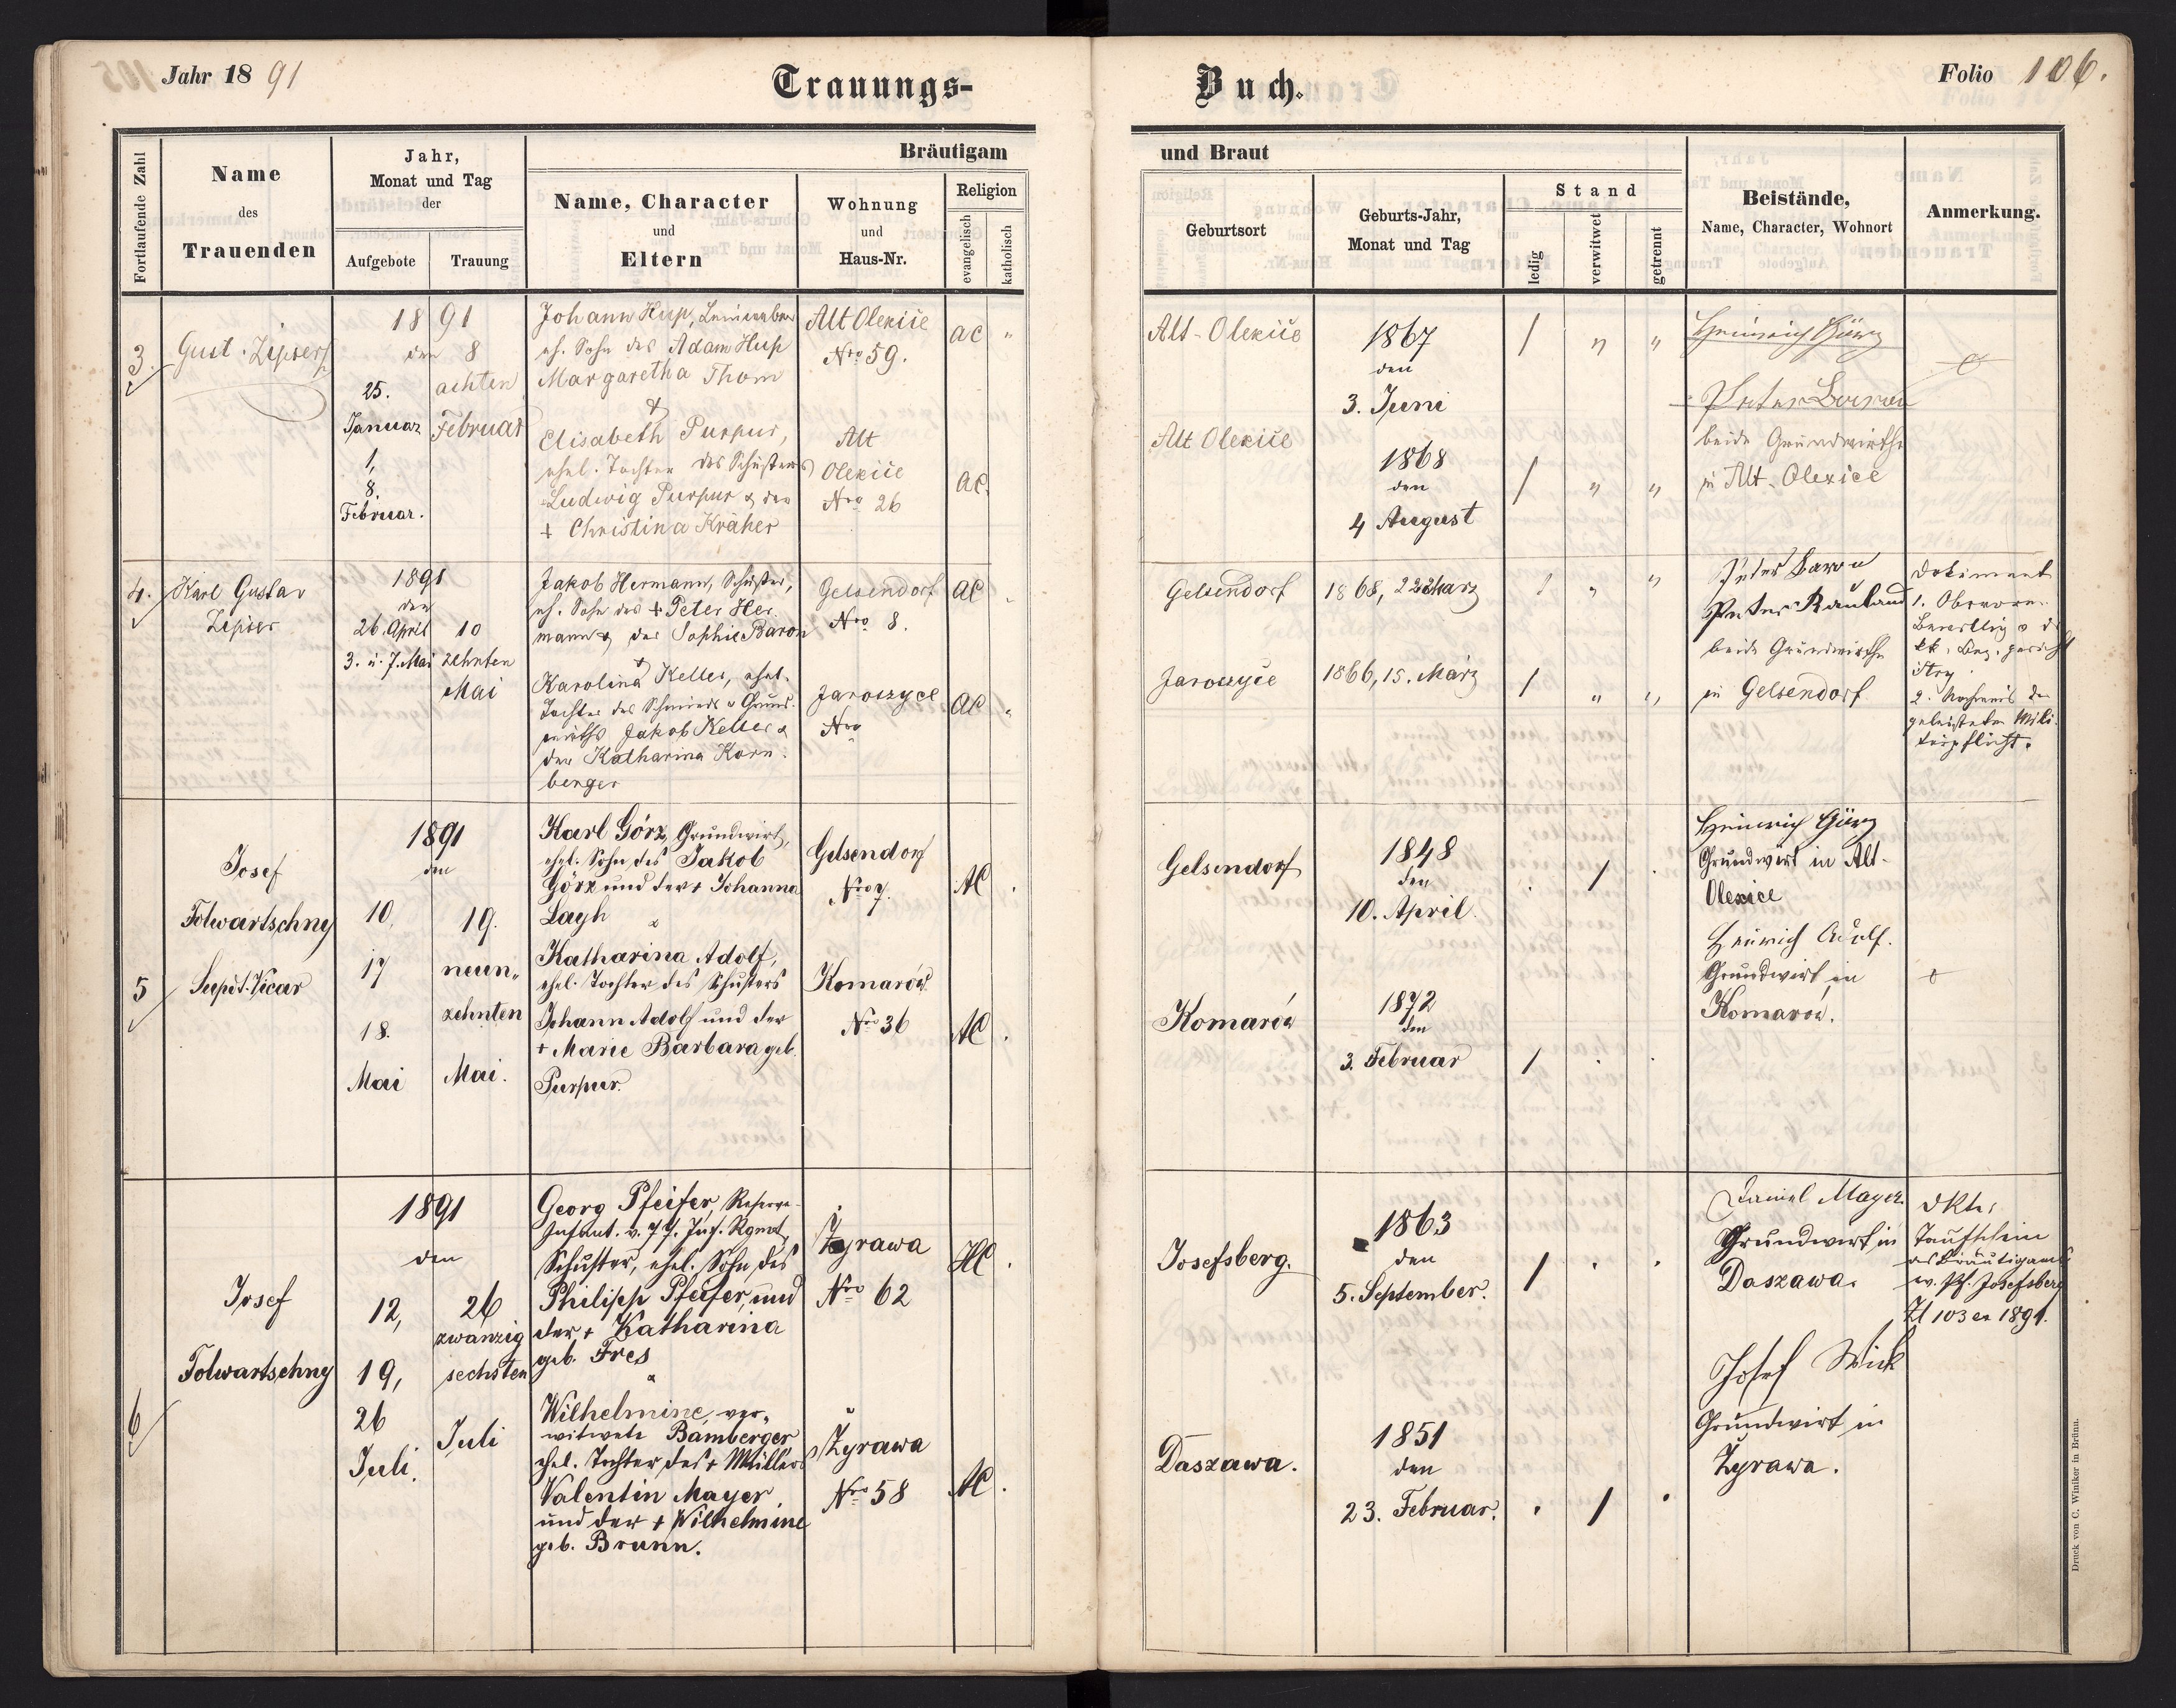 Jahr 18 91
Trauungs-
Buch.
Folio 106.
Fortlaufende Zahl
Name
des
Trauenden
Jahr,
Monat und Tag
der
Aufgebote
Trauung
Bräutigam
Name, Character
und
Eltern
Wohnung
und
Haus-Nr.
Religion
evangelisch
katholisch
und Braut
Geburtsort
Geburts-Jahr,
Monat und Tag
Stand
ledig
verwitwet
getrennt
Beistände,
Name, Character, Wohnort
Anmerkung.
3.
Gust. Zipser
1891
den 8
25.
Januar
1,
8.
Februar.
achten
Februar
Johann Hup,
eh. Sohn des Adam Hup
Margaretha Thom
&
Elisabeth Purpur,
ehel. Tochter des Schusters
Ludwig Purpur & der
+ Christina Kräher
Alt Olexice
Nro 59.
AC "
Alt
Olexice
Nro 26
AC.
Alt-Olexice
1867
den
3. Juni
/ " "
Alt Olexice
1868
den
4 August
/ " "
Heinrich Görz
Peter Baron
beide Grundwirthe
in Alt-Olexice
4.
Karl Gustav
Zipser
1891
den
26. April
3. u. 7. Mai
10
zehnten
Mai
Jakob Hermann, Schuster,
eh. Sohn des + Peter Her
mann & der Sophie Baron
&
Karolina Keller, ehel.
Tochter des Schmieds u Grund-
wirths Jakob Keller &
der Katharina Korn-
berger
Gelsendorf
Nro 8.
AC
Jaroszyce
Nro
AC "
Gelsendorf
1868, 22 März
/ " "
Jaroszyce
1866, 15. März
/ " "
Baron
Peter Rauland
beide Grundwirthe
in Gelsendorf
Dokument
1. Obervorm.
Bewillig v d
kk. Bez. gericht
Stry
2. Nachweis der
geleisteten Mili-
tärpflicht.
5
Josef
Folwartschny
Supdt. Vicar
1891
den
10,
17
18.
Mai
19.
neun-
zehnten
Mai.
Karl Görz, Grundwirt,
ehel. Sohn des Jakob
Görz und der + Johanna
Lagh
&
Katharina Adolf,
ehel. Tochter des Schusters
Johann Adolf und der
+ Marie Barbara geb.
Purpur.
Gelsendorf
Nro 7.
AC .
Komarów
Nro 36
AC .
Gelsendorf
1848
den
10. April.
. / .
Komarów
1872
den
3. Februar
/ . .
Heinrich Görz
Grundwirt in Alt-
Olexice
Heinrich Adolf.
Grundwirt in
Komarów.
6
Josef
Folwartschny
1891
den
12,
19,
26
Juli.
26
zwanzig
sechsten
Juli
Georg Pfeifer, Reserve-
Infant. v. 77. Inf. Rgmt,
Schuster, ehel. Sohn des
Philipp Pfeifer, und
der + Katharina
geb. Fres
&
Wilhelmine, ver-
witwete Bamberger
ehel. Tochter des + Müllers
Valentin Mayer
und der + Wilhelmine
geb. Brunn.
Żyrawa
Nro 62
HC .
Żyrawa
Nro 58
AC .
Josefsberg.
1863
den
5. September.
/ . .
Daszawa.
1851
den
23. Februar.
. / .
Daniel Mayer
Grundwirt in
Daszawa.
Josef Wick
Grundwirt in
Żyrawa.
Dkte:
Taufschein
des Bräutigams
v. Pf. Josefsberg
Zl 103 ex 1891.
Druck von C. Winiker in Brünn.